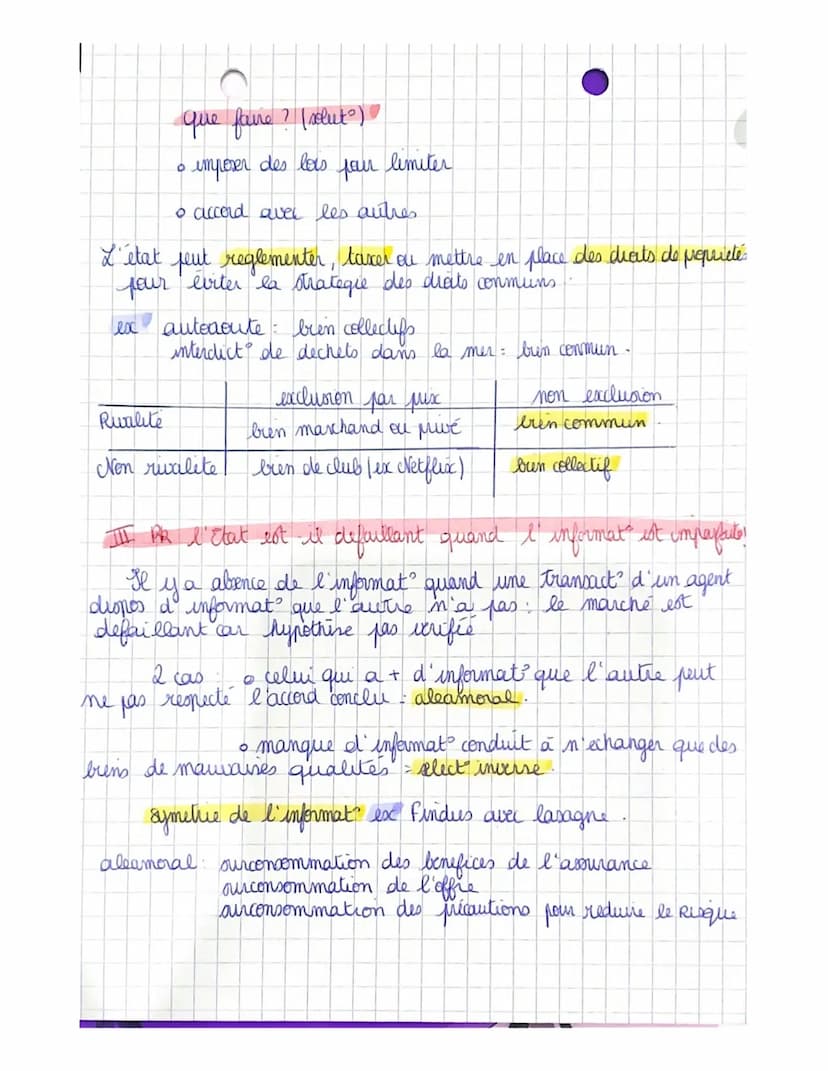 Que faire ? (solut°)
o imposer des lois pour limiter
o accord avec les autres
L'état peut reglementer, taxer ou mettre en place des droits de propriété
pour éviter la strategie des droits communs.
ex autoroute : bien collectifs
interdict° de dechets dans la mer = bien commun.
exclusion par prix non exclusion
Rivalité bien marchand ou privé bien commun.
Non rivalite bien de club (ex Netflix) bien collectif
III l'Etat est-il defaillant quand l'informat° est imparfaite!
Il y a absence de l'informat° quand une transact° d'un agent
dispos d'informat° que l'autre n'a pas : le marché est
defaillant car hypothèse pas verifié
2 cas : o celui qui a + d'informat° que l'autre peut
ne pas respecté l'accord conclu = aleamoral.
o manque d'informat° conduit à n'echanger que des
biens de mauvaises qualités = select° inverse.
symetrie de l'informat° ex Findus avec lasagne.
aleamoral : surconsommation des benefices de l'assurance
surconsommation de l'offre
surconsommation des précautions pour reduire le Risque